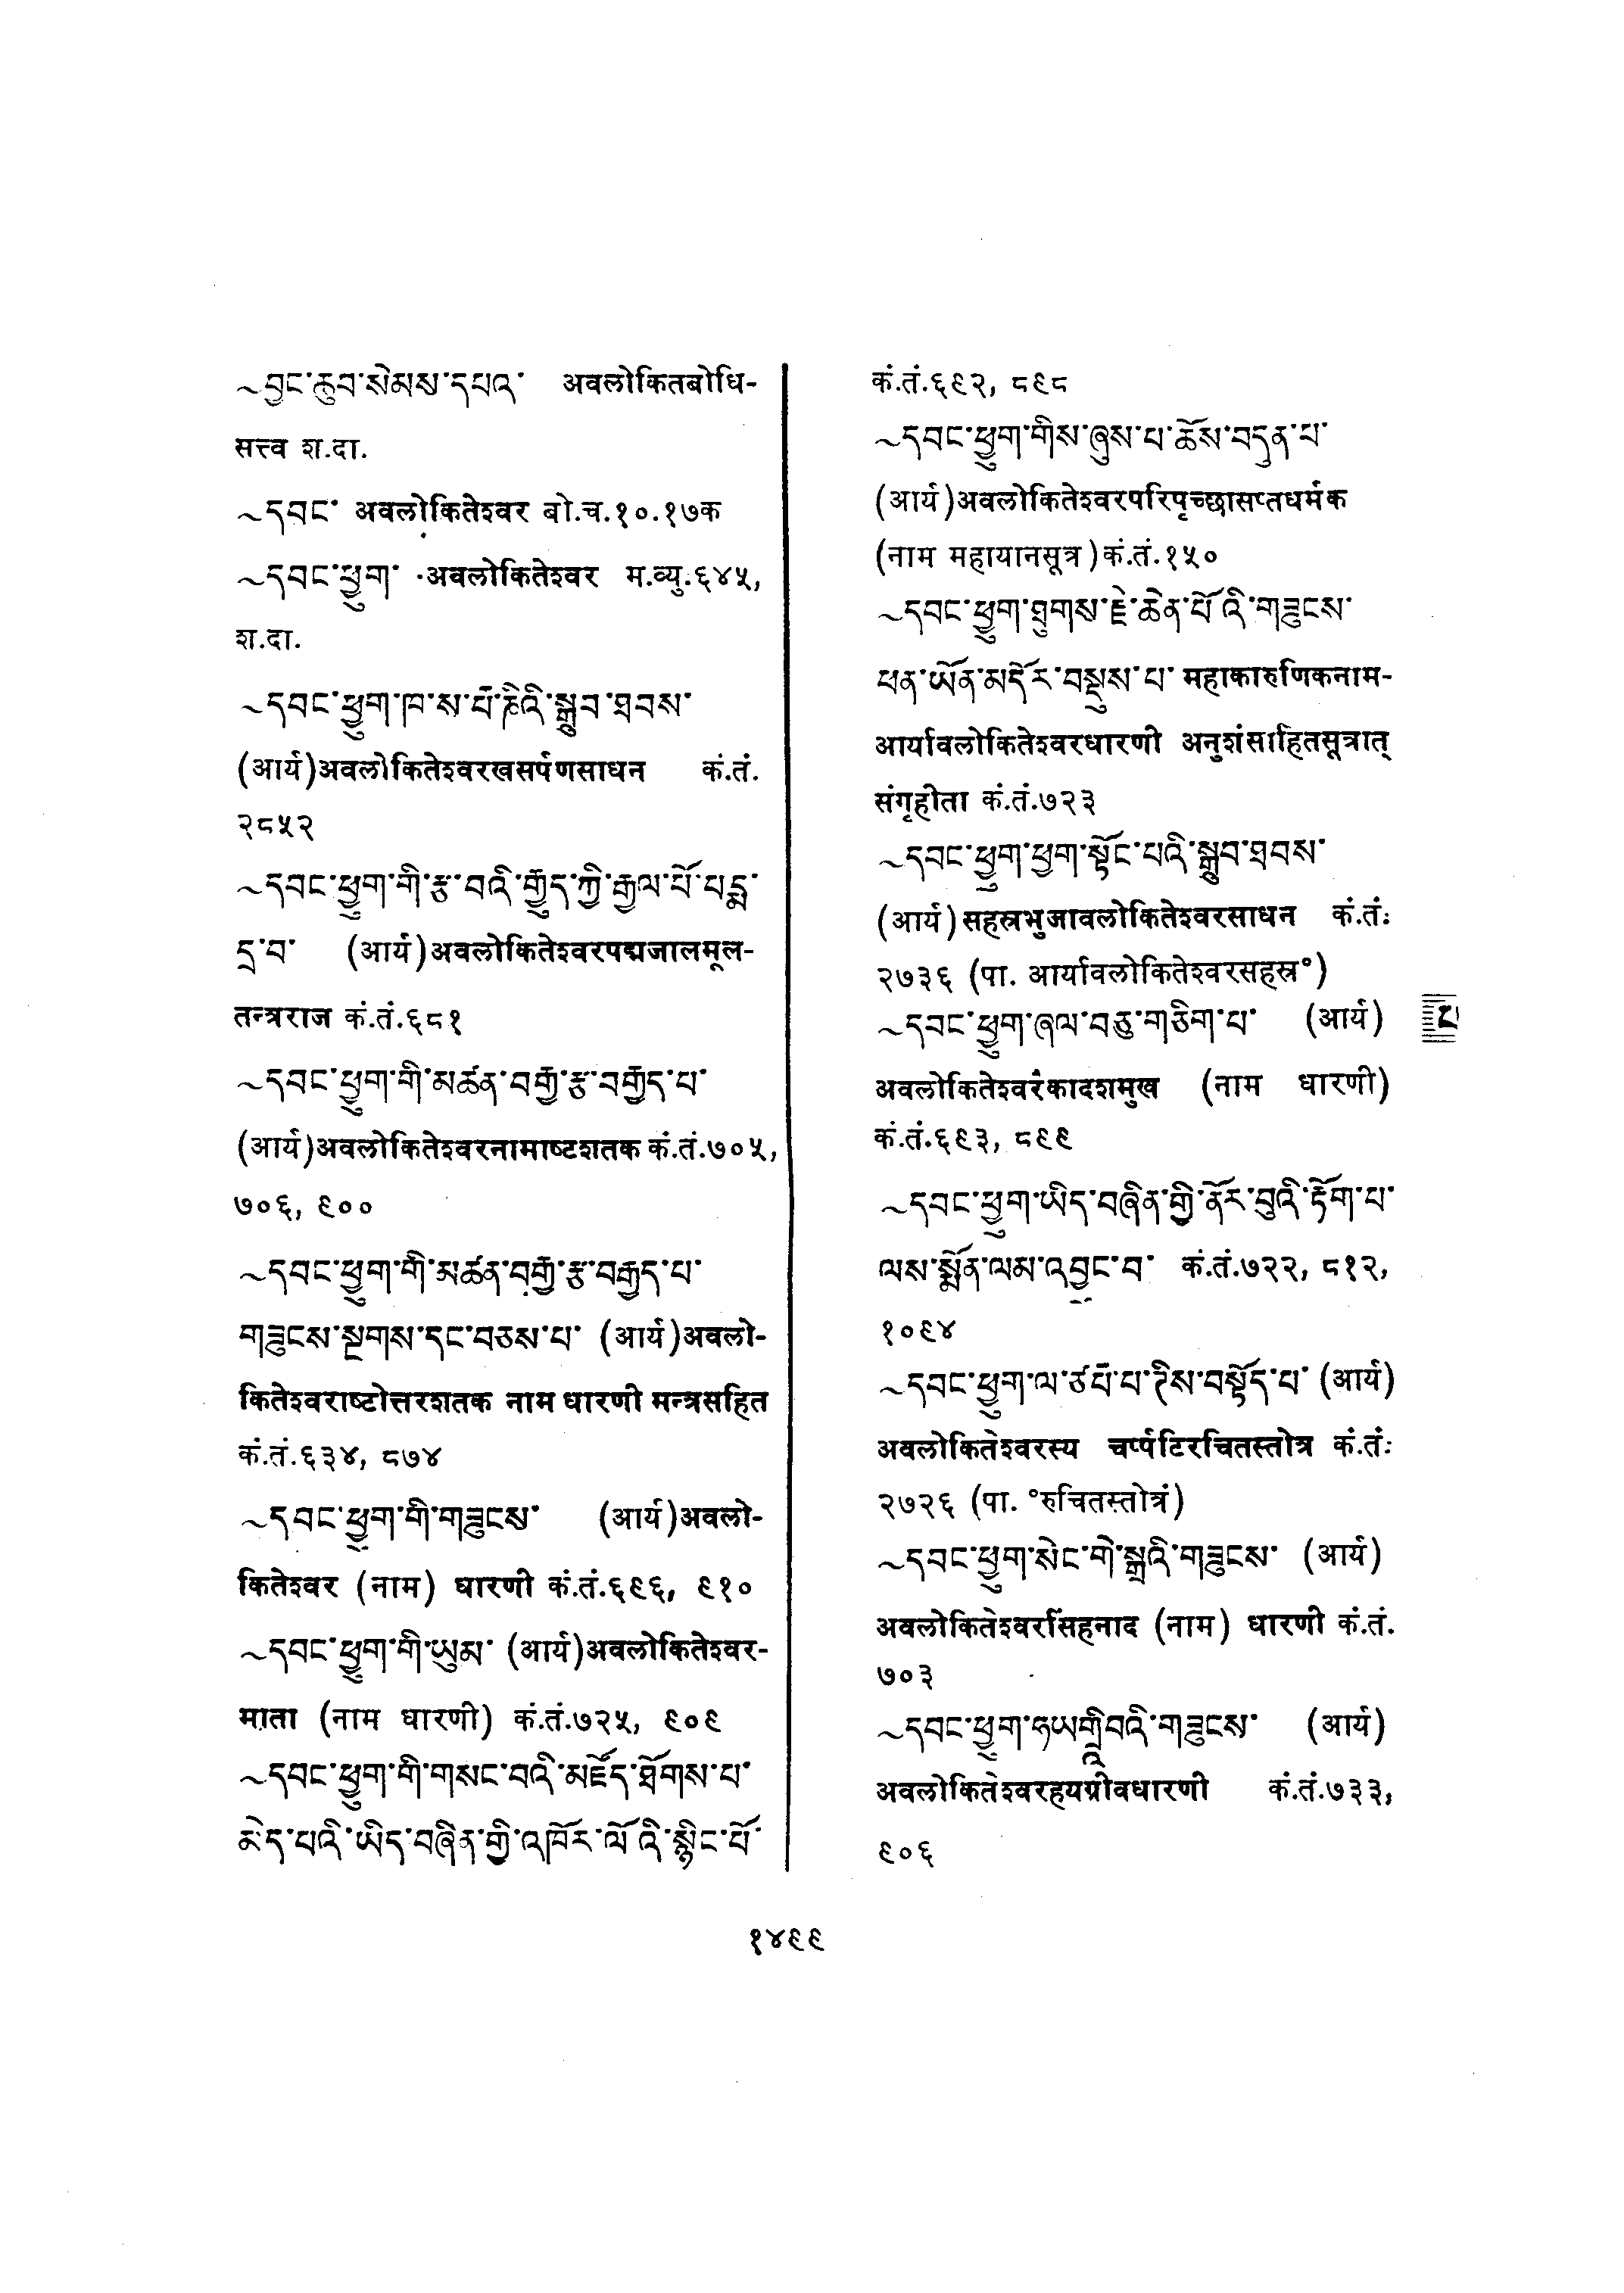 ~བྱང་ཆུབ་སེམས་དཔའ་ अवलोकितबोधि-
सत्त्व श.दा.
~དབང་ अवलोकितेश्वर बो.च.१०.१७क
~དབང་ཕྱུག་ अवलोकितेश्वर म.व्यु.६४५,
श.दा.
~དབང་ཕྱུག་ཁ་ས་པཱ་ཎིའི་སྒྲུབ་ཐབས་
(आर्य)अवलोकितेश्वरखसर्पणसाधन कं.तं.
२८५२
~དབང་ཕྱུག་གི་རྩ་བའི་རྒྱུད་ཀྱི་རྒྱལ་པོ་པདྨ་
དྲ་བ་ (आर्य)अवलोकितेश्वरपद्मजालमूल-
तन्त्रराज कं.तं.६८१
~དབང་ཕྱུག་གི་མཚན་བརྒྱ་རྩ་བརྒྱད་པ་
(आर्य)अवलोकितेश्वरनामाष्टशतक कं.तं.७०५,
७०६, ९००
~དབང་ཕྱུག་གི་མཚན་བརྒྱ་རྩ་བརྒྱད་པ་
གཟུངས་སྔགས་དང་བཅས་པ་ (आर्य)अवलो-
कितेश्वराष्टोत्तरशतक नाम धारणी मन्त्रसहित
कं.तं.६३४, ८७४
~དབང་ཕྱུག་གི་གཟུངས་ (आर्य)अवलो-
कितेश्वर (नाम) धारणी कं.तं.६९६, ९१०
~དབང་ཕྱུག་གི་ཡུམ་ (आर्य)अवलोकितेश्वर-
माता (नाम धारणी) कं.तं.७२५, ९०९
~དབང་ཕྱུག་གི་གསང་བའི་མཛོད་ཐོགས་པ་
མེད་པའི་ཡིད་བཞིན་གྱི་འཁོར་ལོའི་སྙིང་པོ་
कं.तं.६९२, ८९८
~དབང་ཕྱུག་གིས་ཞུས་པ་ཆོས་བདུན་པ་
(आर्य)अवलोकितेश्वरपरिपृच्छासप्तधर्मक
(नाम महायानसूत्र)कं.तं.१५०
~དབང་ཕྱུག་ཐུགས་རྗེ་ཆེན་པོའི་གཟུངས་
ཕན་ཡོན་མདོར་བསྡུས་པ་ महाकारुणिकनाम-
आर्यावलोकितेश्वरधारणी अनुशंसाहितसूत्रात्
संगृहीता कं.तं.७२३
~དབང་ཕྱུག་ཕྱག་སྟོང་པའི་སྒྲུབ་ཐབས་
(आर्य)सहस्रभुजावलोकितेश्वरसाधन कं.तं.
२७३६ (पा. आर्यावलोकितेश्वरसहस्र॰)
~དབང་ཕྱུག་ཞལ་བཅུ་གཅིག་པ་ (आर्य)
अवलोकितेश्वरैकादशमुख (नाम धारणी)
कं.तं.६९३, ८९९
~དབང་ཕྱུག་ཡིད་བཞིན་གྱི་ནོར་བུའི་རྟོག་པ་
ལས་སྨོན་ལམ་འབྱུང་བ་ कं.तं.७२२, ८१२,
१०९४
~དབང་ཕྱུག་ལ་ཙརྤ་པ་ཊིས་བསྟོད་པ་ (आर्य)
अवलोकितेश्वरस्य चर्पटिरचितस्तोत्र कं.तं.
२७२६ (पा. ॰रुचितस्तोत्रं)
~དབང་ཕྱུག་སེང་གེ་སྒྲའི་གཟུངས་ (आर्य)
अवलोकितेश्वरसिंहनाद (नाम) धारणी कं.तं.
७०३
~དབང་ཕྱུག་ཧཡགྲཱིབའི་གཟུངས་ (आर्य)
अवलोकितेश्वरहयग्रीवधारणी कं.तं.७३३,
९०६
१४९९